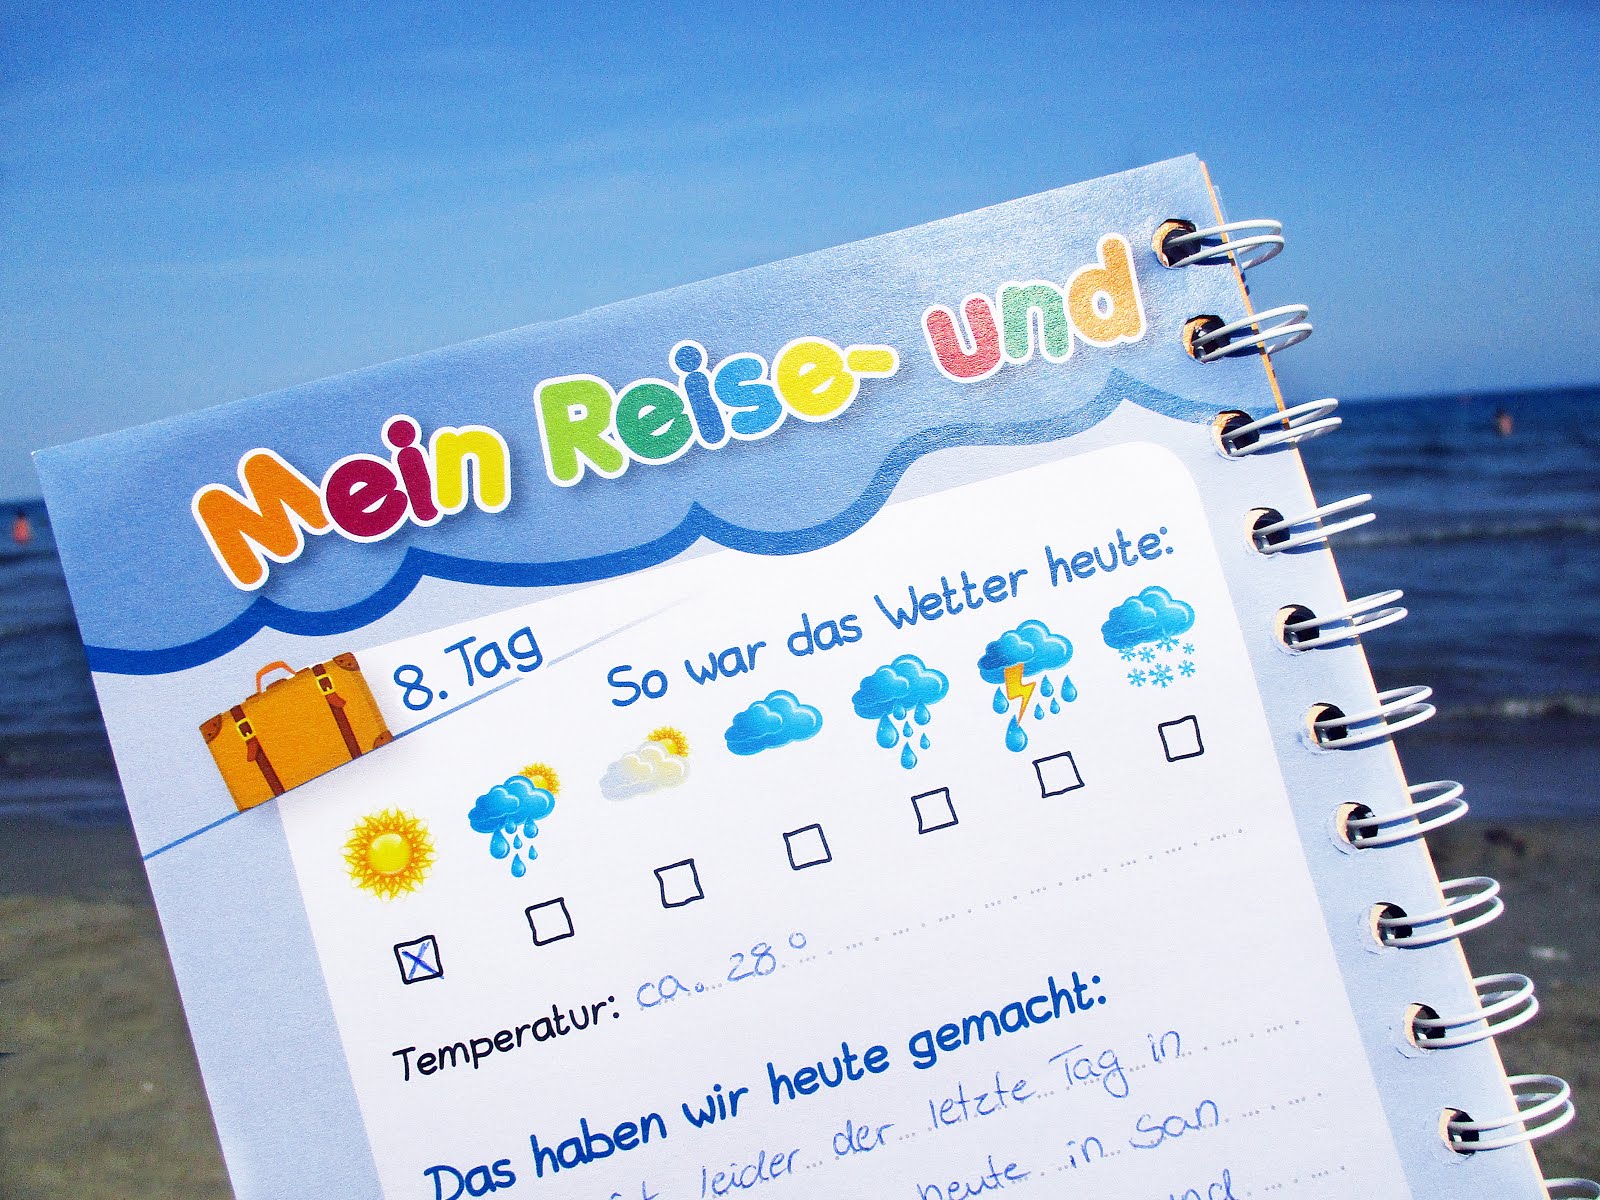 Mein Reise- und
8. Tag
So war das Wetter heute:
Temperatur: ca. 28.°
Das haben wir heute gemacht:
leider der letzte Tag in
heute in San
und